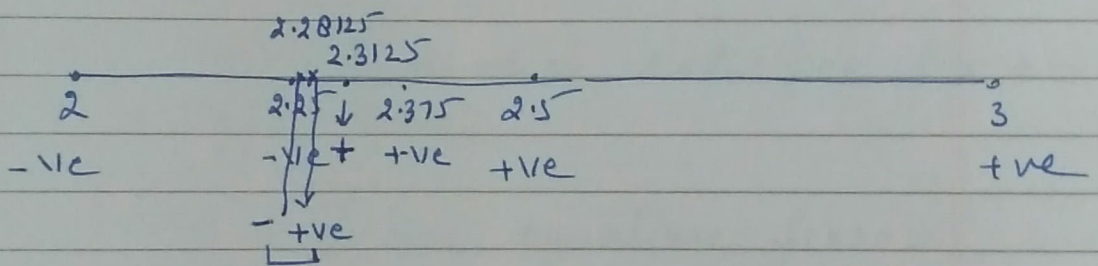 2.28125
2.3125
2 2.25 ↓ 2.375 2.5 3
-ve -ve + +ve +ve +ve
- +ve